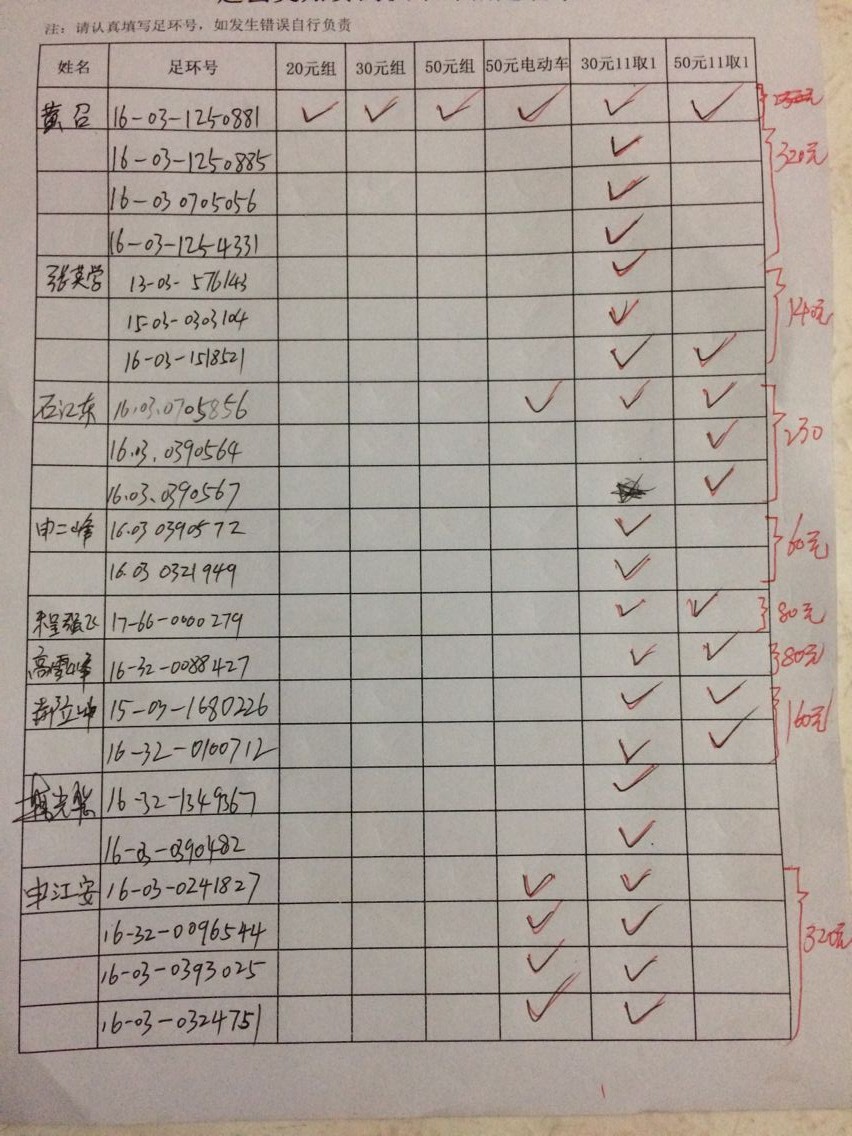 注：请认真填写足环号，如发生错误自行负责
姓名 足环号 20元组 30元组 50元组 50元电动车 30元11取1 50元11取1
黄召 16-03-1250881 ✓ ✓ ✓ ✓ ✓ ✓
16-03-1250885 ✓ 320元
16-03 0705056 ✓
16-03-1254331 ✓
张英学 13-03-576143 ✓
15-03-0303104 ✓ 140元
16-03-1518521 ✓ ✓
石江东 16.03.0705856 ✓ ✓ ✓
16.03.0390564 ✓ 230
16.03.0390567 ✓
申二峰 16.03 0390572 ✓
16.03 0321949 ✓ 60元
程强飞 17-66-0000279 ✓ ✓ 80元
高雪峰 16-32-0088427 ✓ ✓ 80元
15-03-1680226 ✓ ✓
16-32-0100712 ✓ ✓ 160元
16-32-1349367 ✓
16-03-0390482 ✓
申江安 16-03-0241827 ✓ ✓
16-32-0096544 ✓ ✓ 320元
16-03-0393025 ✓ ✓
16-03-0324751 ✓ ✓